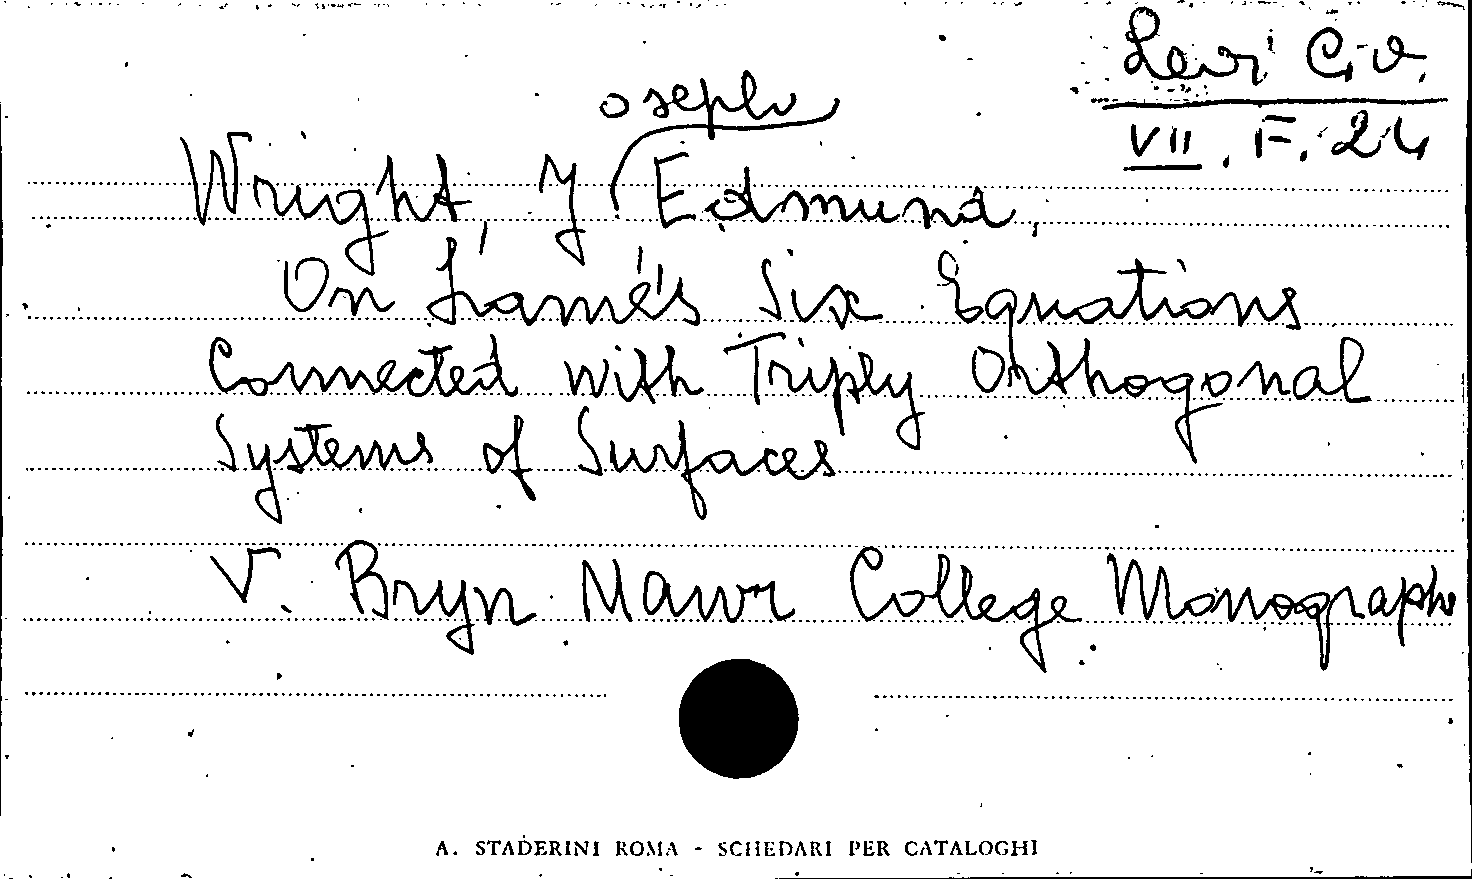 Levi Civ.
VII. F. 24
oseph
Wright, J Edmund,
On Lamé's Six Equations
Connected with Triply Orthogonal
Systems of Surfaces
V. Bryn Mawr College Monographs
A. STADERINI ROMA - SCHEDARI PER CATALOGHI